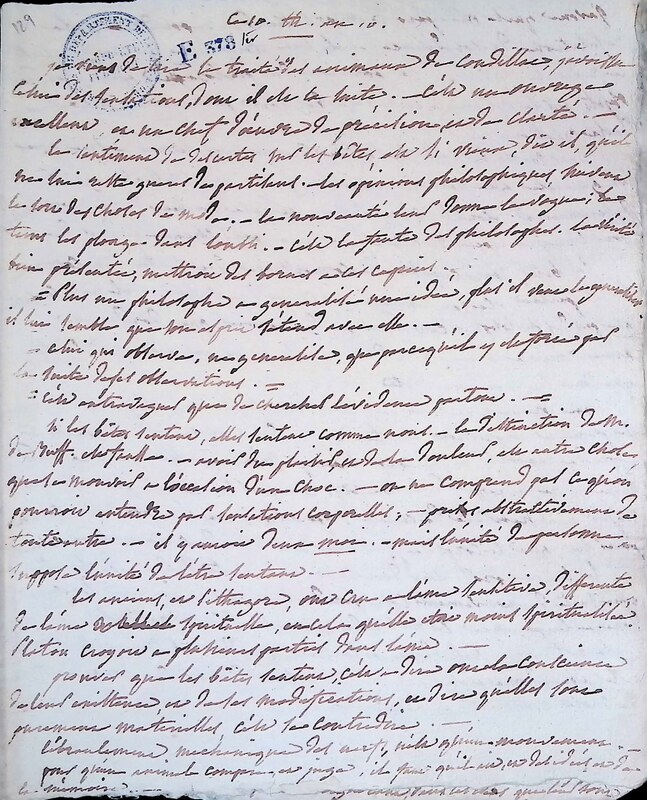 ce 10. th. an 10.
F 378
je viens de lire le traité des animaux de Condillac,
celui des sensations, dont il est la suite. — C'est un ouvrage
excellent, et un chef d'œuvre de précision et de clarté. —
le sentiment de descartes sur les bêtes est si vieux, dit il, qu'il
ne lui reste gueres de partisans. les opinions philosophiques, suivent
le sort des choses de mode. — la nouveauté leur donne la vogue, le
tems les plonge dans l'oubli. — c'est la faute des philosophes. la vérité
bien présentée, mettroit des bornes a ces caprices
= Plus un philosophe a generalisé une idée, plus il veut la generaliser.
il lui semble que son esprit s'étend avec elle. —
— celui qui observe, ne generalise, que parcequ'il y est forcé par
la suite de ses observations. =
c'est extravaguer que de chercher l'évidence partout. — =
si les bêtes sentent, elles sentent comme nous. — la distinction de M.
de Buff. est fausse. — avoir du plaisir, et de la douleur, est autre chose
que se mouvoir a l'occasion d'un choc. — on ne comprend pas ce qu'on
pourroit entendre par sensations corporelles, — abstractivement de
toute autre. — il y auroit deux moi. — mais l'unité de personne
suppose l'unité de l'être sentant. —
les anciens, et Pithagore, ont cru a l'âme sensitive, differente
de l'âme spirituelle, en cela qu'elle etoit moins spiritualisée.
Platon croyoit a plusieurs parties dans l'âme. —
prouver que les bêtes sentent, c'est a dire ont la conscience
de leur existence, et de ses modifications, et dire qu'elles sont
purement matérielles, c'est se contredire. —
l'ébranlement mechanique des nerfs, n'est qu'un mouvement.
pour qu'un animal compare, et juge, il faut qu'il ait, et des idées et de
la memoire. —